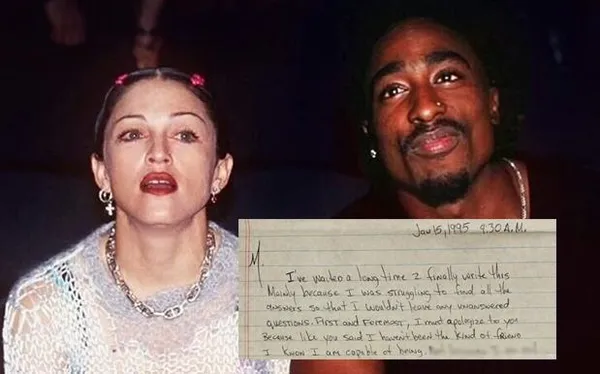 Jan 15, 1995 4:30 A.M.
M,
I've waited a long time 2 finally write this
Mainly because I was struggling to find all the
answers so that I wouldn't leave any unanswered
questions. First and Foremost, I must apologize to you
Because like you said I haven't been the kind of friend
I know I am capable of being.